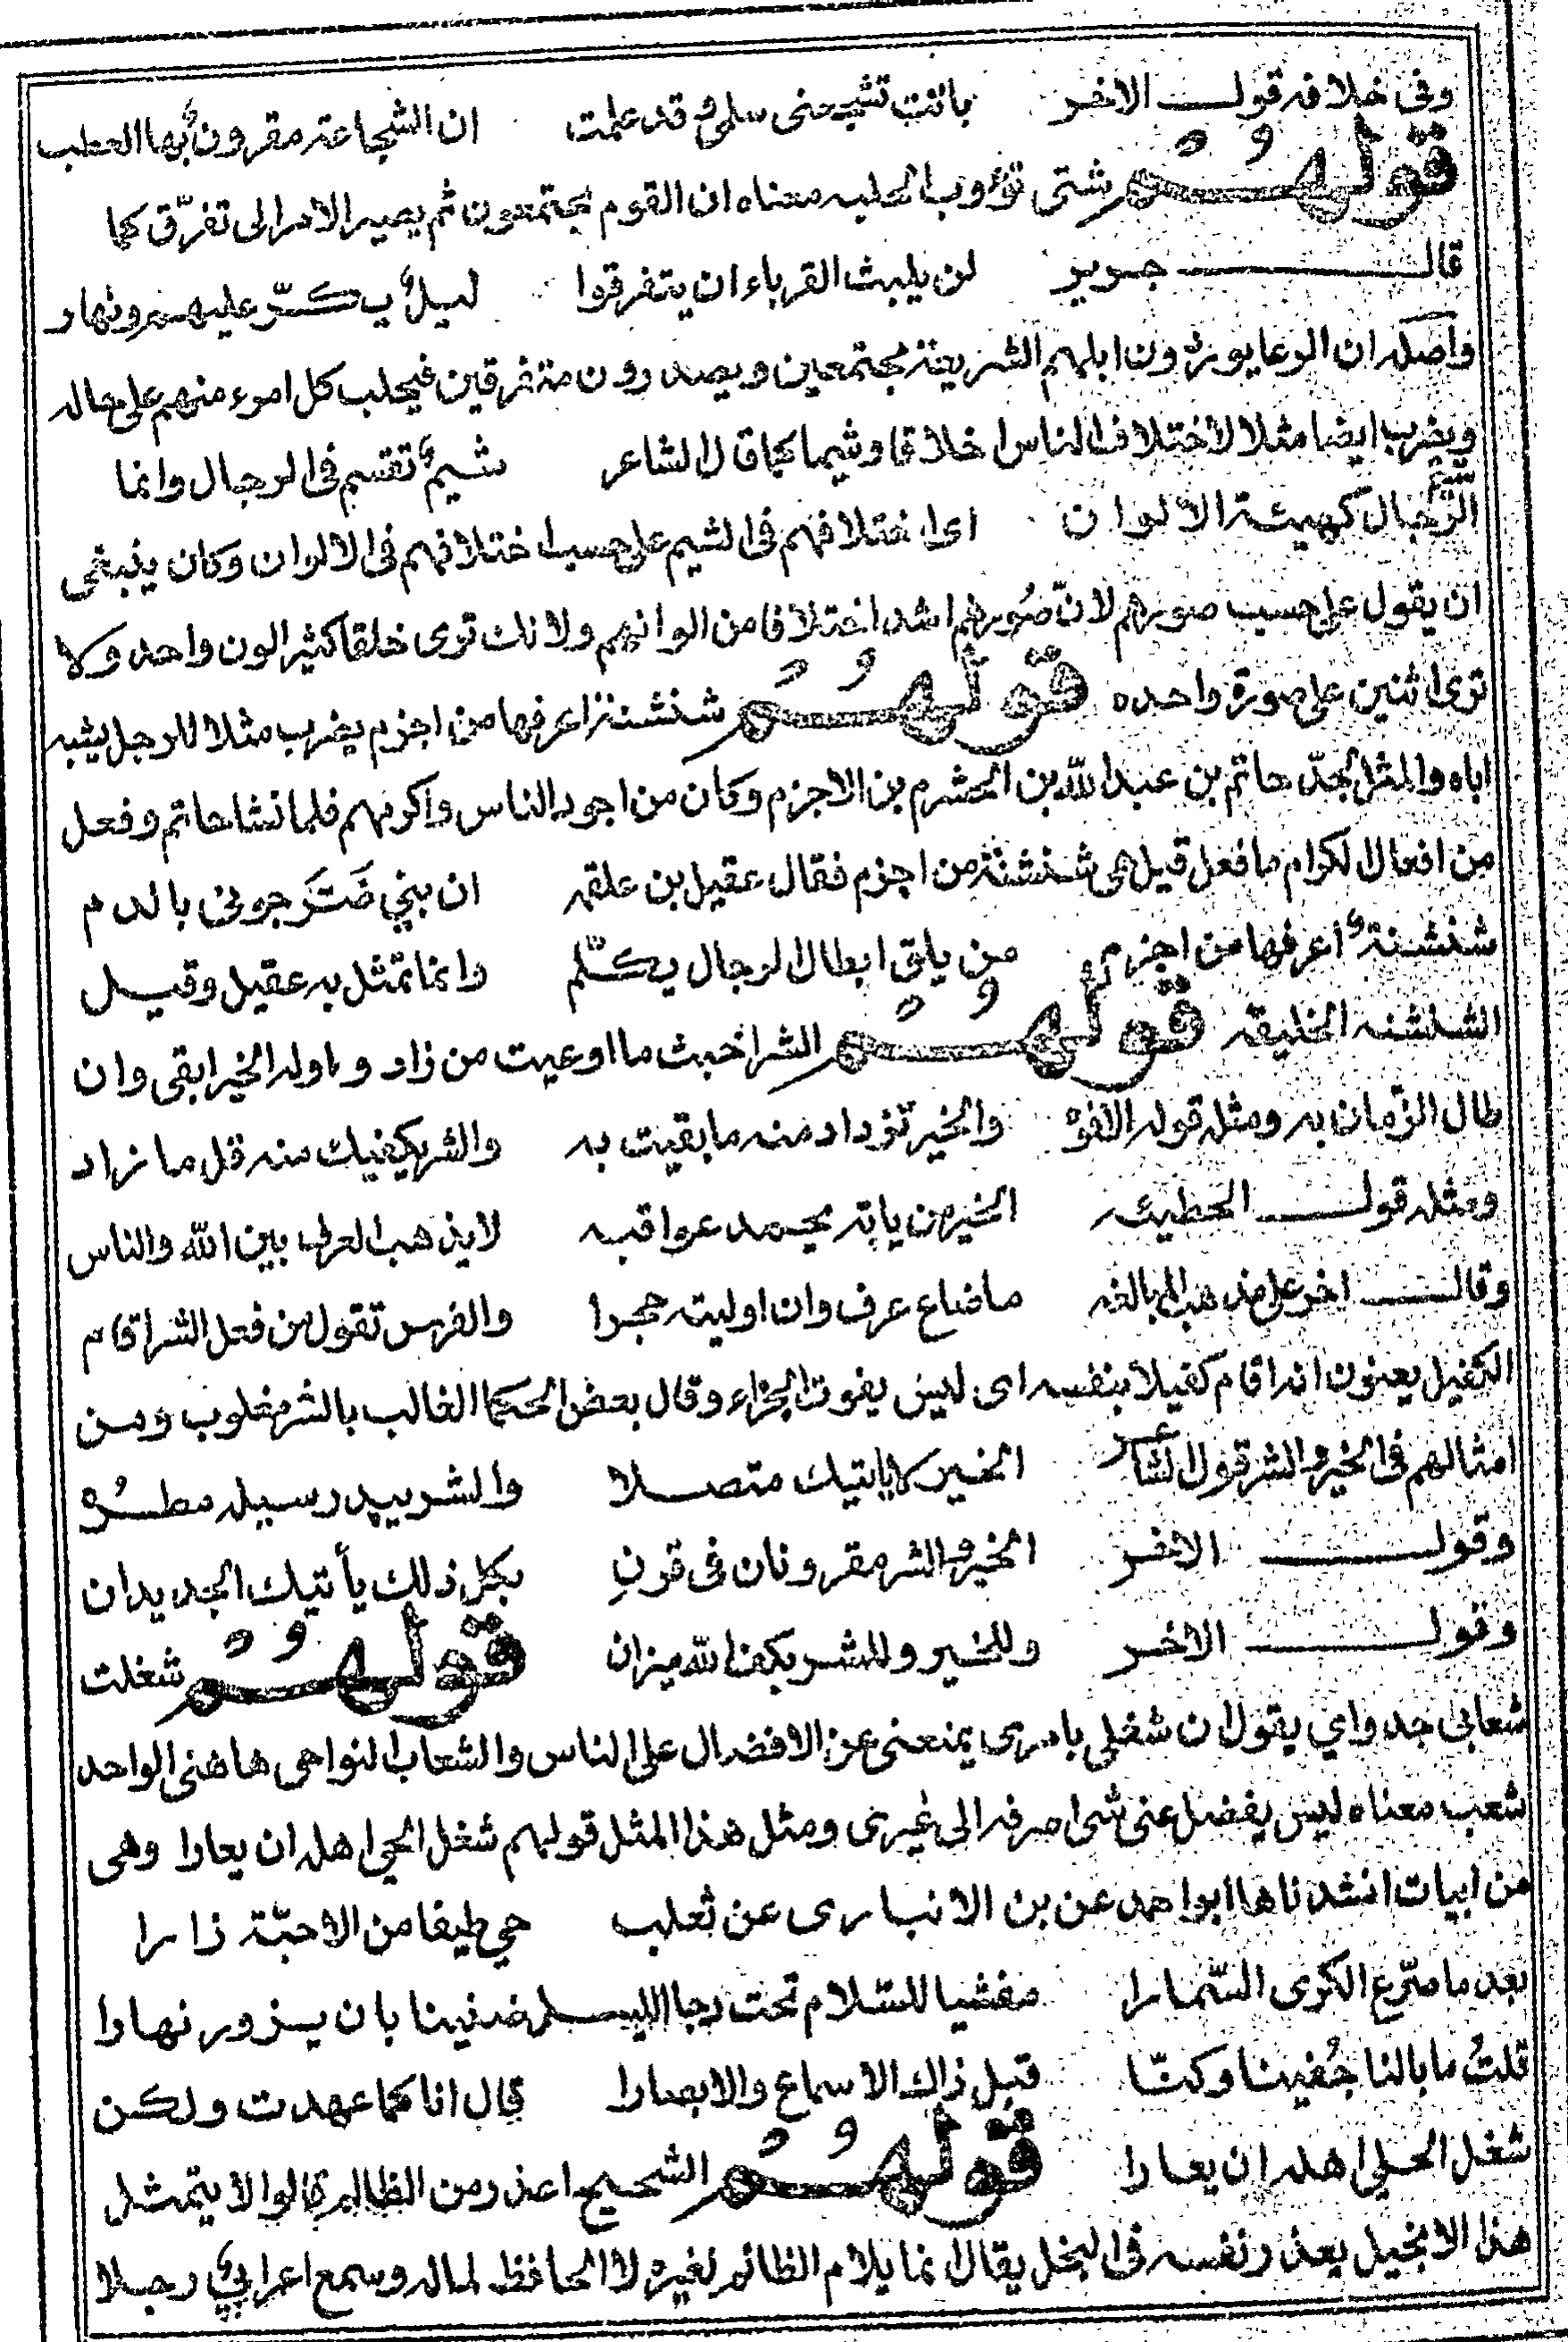 وفى خلافه قول الاخر باتت تشجعنى سلمى وقد علمت ان الشجاعة مقرونٌ بها العطب
قولهم شتى تؤوب الحلبه معناه ان القوم يجتمعون ثم يصير الامر الى تفرّق كما
قال جرير لن يلبث القرباء ان يتفرقوا ليلٌ يكرّ عليهم ونهار
واصله ان الرعا يوردون ابلهم الشريعة مجتمعين ويصدرون متفرقين فيحلب كل امرء منهم على حاله
ويضرب ايضا مثلا لاختلاف الناس اخلاقا وشيما كما قال الشاعر شيمٌ تقسم فى الرجال وانما
شيم الرّجال كهيئة الالوان اى اختلافهم فى الشيم على حسب اختلافهم فى الالوان وكان ينبغى
ان يقول على حسب صورهم لانّ صُورهم اشد اختلافا من الوانهم ولانك ترى خلقا كثيرالون واحد ولا
ترى اثنين على صورة واحده قولهم شنشنة اعرفها من اجزم يضرب مثلا للرجل يشبه
اباه والمثل لجدّ حاتم بن عبد الله بن الحشرم بن الاجزم وكان من اجود الناس واكرمهم فلما نشا حاتم وفعل
من افعال الكرام ما فعل قيل هى شنشنة من اجزم فقال عقيل بن علقه ان بني ضَرَّجونى بالدم
شنشنةٌ اعرفها من اجزم من يلق ابطال الرجال يكلّم وانما تمثل به عقيل وقيل
الشلشنه الخليقه قولهم الشر اخبث ما اوعيت من زاد و اوله الخير ابقى وان
طال الزّمان به ومثله قوله الافوه والخير تزداد منه ما بقيت به والشر يكفيك منه قل ما زاد
ومثله قول الحطيئه الخير من ياته يحمد عواقبه لا يذهب العرف بين الله والناس
وقال اخر على مذهب المبالغه ما ضاع عرف وان اوليته حجرا والفرس تقول من فعل الشر اقام
الكفيل يعنون انه اقام كفيلا بنفسه اى ليس يفوت الجزاء وقال بعض الحكما الغالب بالشر مغلوب ومن
امثالهم فى الخير والشر قول الشاعر الخير لا ياتيك متصلا والشر يبدر سيله مطرُه
وقول الاخر الخير والشر مقرونان فى قرنِ بكل ذلك يأتيك الجديدان
وقول الاخر وللخير وللشر بكف الله ميزان قولهم شغلت
شعابى جدواي يقول ان شغلى بامرى يمنعنى عن الافضال على الناس والشعاب النواحى هاهنى الواحد
شعب معناه ليس يفضل عنى شى اصرفه الى غيرى ومثل هذا المثل قولهم شغل الحي اهله ان يعارا وهى
من ابيات انشدناها ابو احمد عن بن الانبارى عن ثعلب حي طيفا من الاحبّة زارا
بعد ما صرّع الكرى السّمارا مفشيا للسّلام تحت دجا الليل ضنينا بان يزور نهارا
قلتُ ما بالنا جُفينا وكنّا قبل ذاك الاسماع والابصارا قال انا كما عهدت ولكن
شغل الحلى اهله ان يعارا قولهم الشحيح اعذر من الظالم قالوا لا يتمثل
هذا الا بخيل يعذر نفسه فى البخل يقال انما يلام الظالم لغيره لا الحافظ لماله وسمع اعرابيٌ رجلا